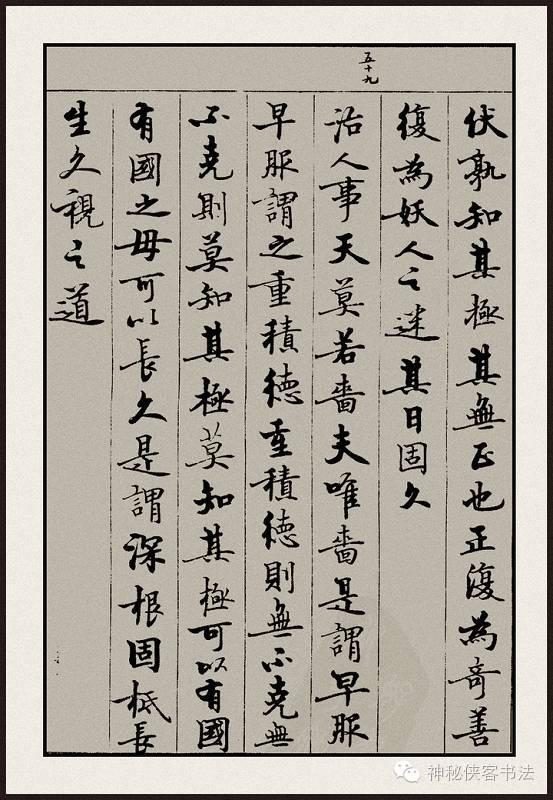 五十九
伏孰知其極其無正也正復為奇善
復為妖人之迷其日固久
治人事天莫若嗇夫唯嗇是謂早服
早服謂之重積德重積德則無不克無
不克則莫知其極莫知其極可以有國
有國之母可以長久是謂深根固柢長
生久視之道
神秘侠客书法